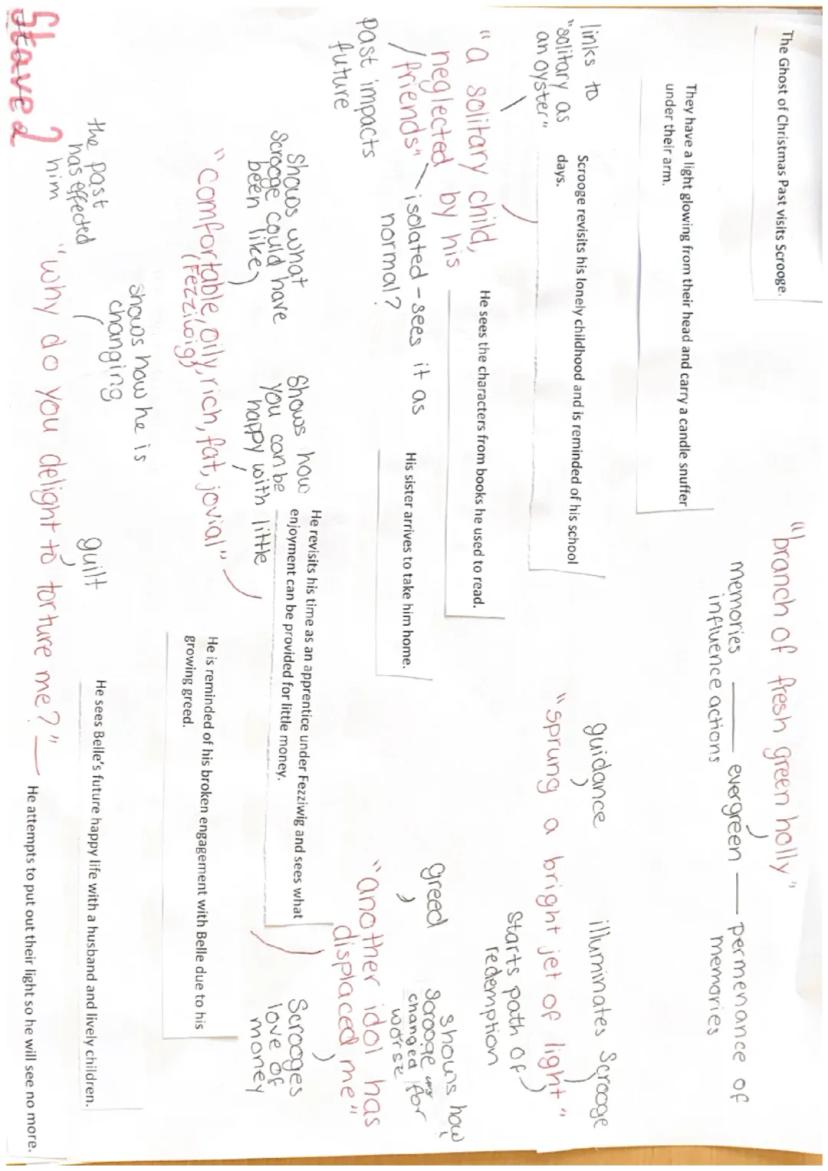 Stave 2
The Ghost of Christmas Past visits Scrooge.
"branch of fresh green holly"
memories — evergreen — permenance of
influence actions
memories
They have a light glowing from their head and carry a candle snuffer
under their arm.
links to
"solitary as
an oyster"
Scrooge revisits his lonely childhood and is reminded of his school
days.
guidance
illuminates Scrooge
"sprung a bright jet of light"
starts path of
redemption
"a solitary child,
neglected by his
friends"
isolated - sees it as
normal?
past impacts
future
He sees the characters from books he used to read.
His sister arrives to take him home.
greed
shows how
scrooge
changed for
worse
"another idol has
displaced me"
Scrooges
love of
money
Shows what
scrooge could have
been like
Shows how
you can be
happy with little
He revisits his time as an apprentice under Fezziwig and sees what
enjoyment can be provided for little money.
"comfortable, oily, rich, fat, jovial"
(Fezziwig)
He is reminded of his broken engagement with Belle due to his
growing greed.
the past
has effected
him
shows how he is
changing
guilt
He sees Belle's future happy life with a husband and lively children.
"why do you delight to torture me?"
He attempts to put out their light so he will see no more.